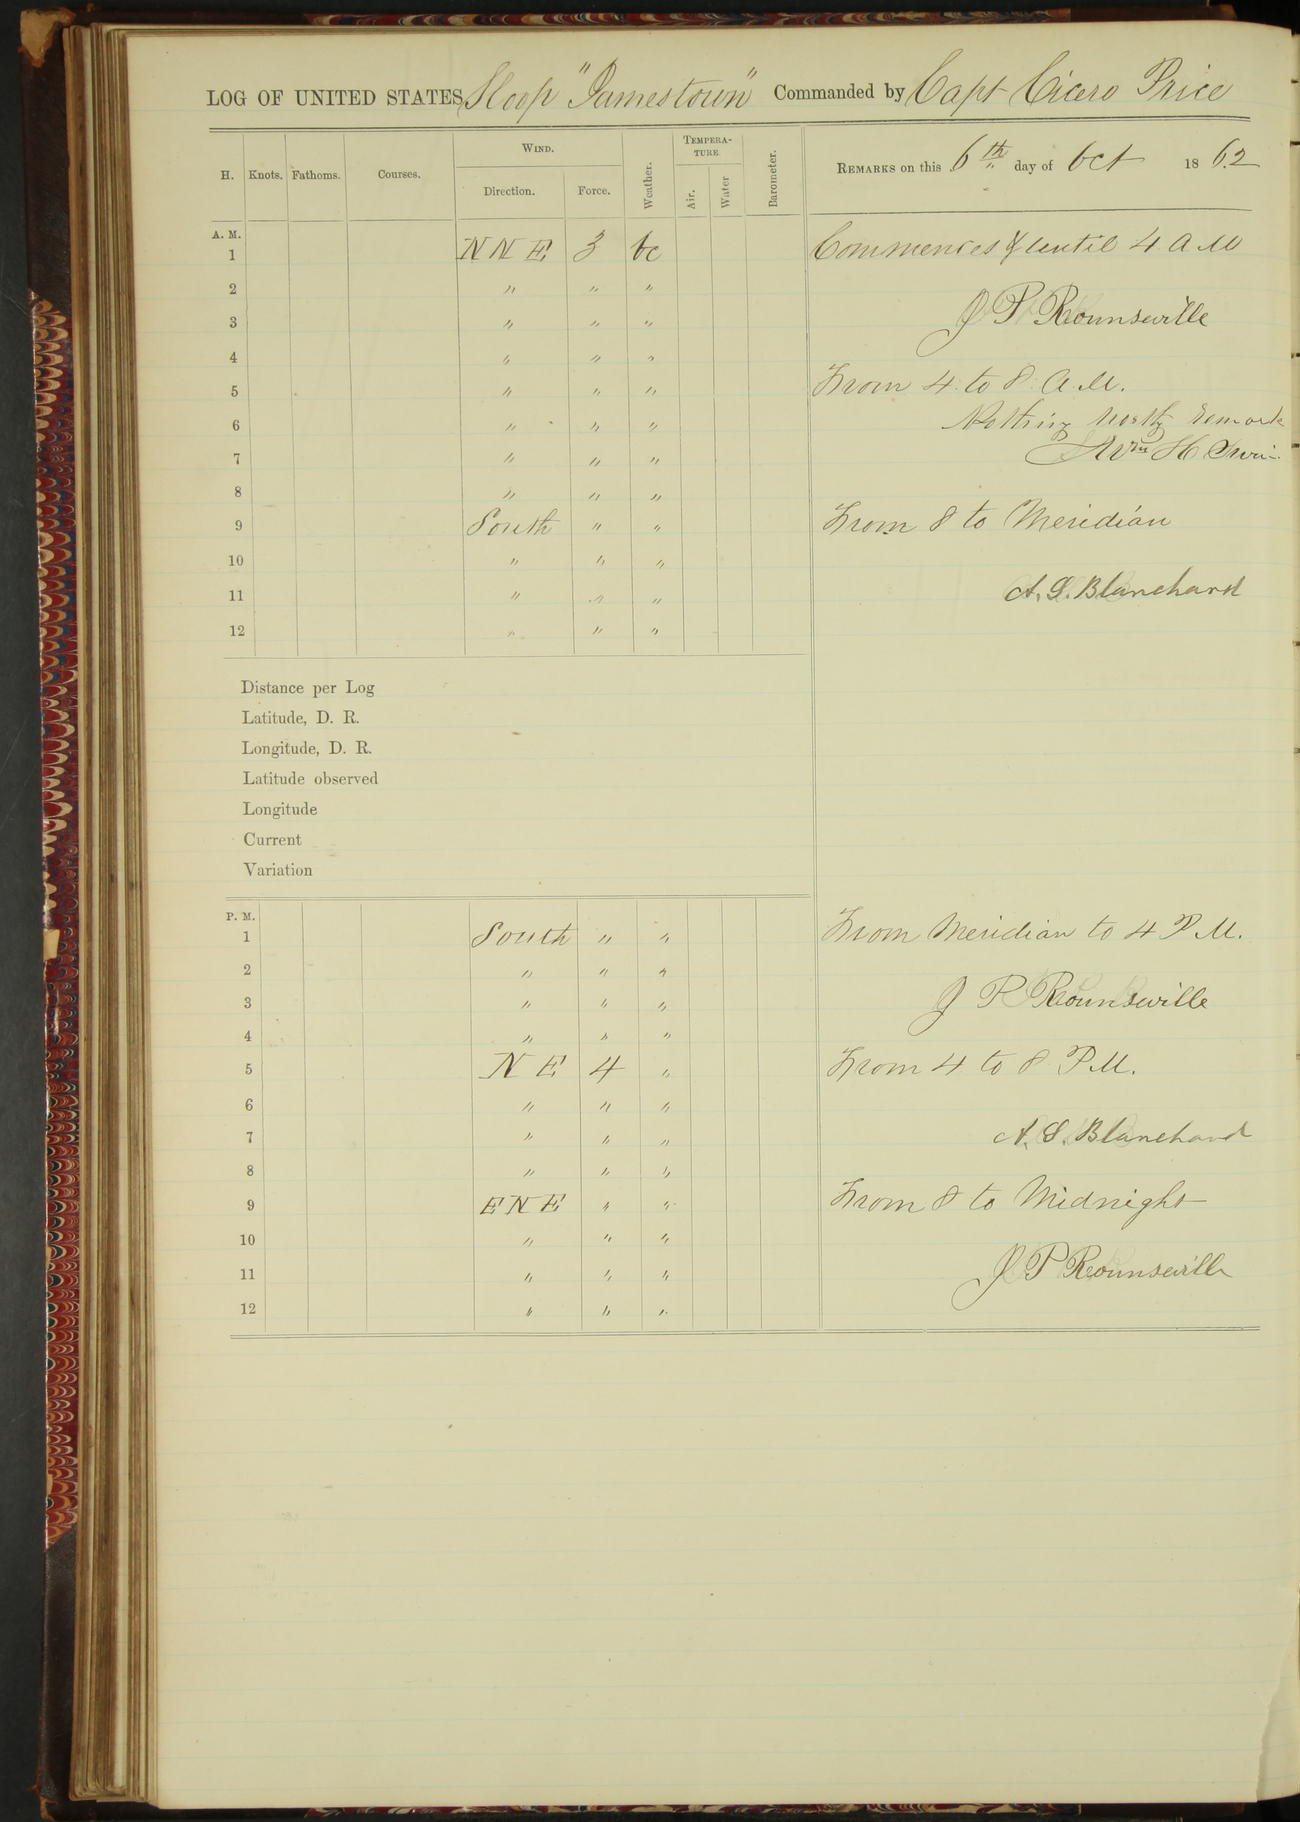 LOG OF UNITED STATES Sloop "Jamestown" Commanded by Capt Cicero Price
H. Knots. Fathoms. Courses. WIND. Direction. Force. Weather. TEMPERATURE Air. Water Barometer. REMARKS on this 6th day of Oct 1862
A. M.
1 NNE 3 bc Commences & until 4 AM
2 " " "
3 " " " J P Rounseville
4 " " "
5 " " " From 4 to 8 A.M.
6 " " " Nothing worthy remark
7 " " " Wm H
8 " " "
9 South " " From 8 to Meridian
10 " " "
11 " " " A. S. Blanchard
12 " " "
Distance per Log
Latitude, D. R.
Longitude, D. R.
Latitude observed
Longitude
Current
Variation
P. M.
1 South " " From Meridian to 4 P.M.
2 " " "
3 " " " J P Rounseville
4 " " "
5 NE 4 " From 4 to 8 P.M.
6 " " "
7 " " " A. S. Blanchard
8 " " "
9 ENE " " From 8 to Midnight
10 " " "
11 " " " J P Rounseville
12 " " "